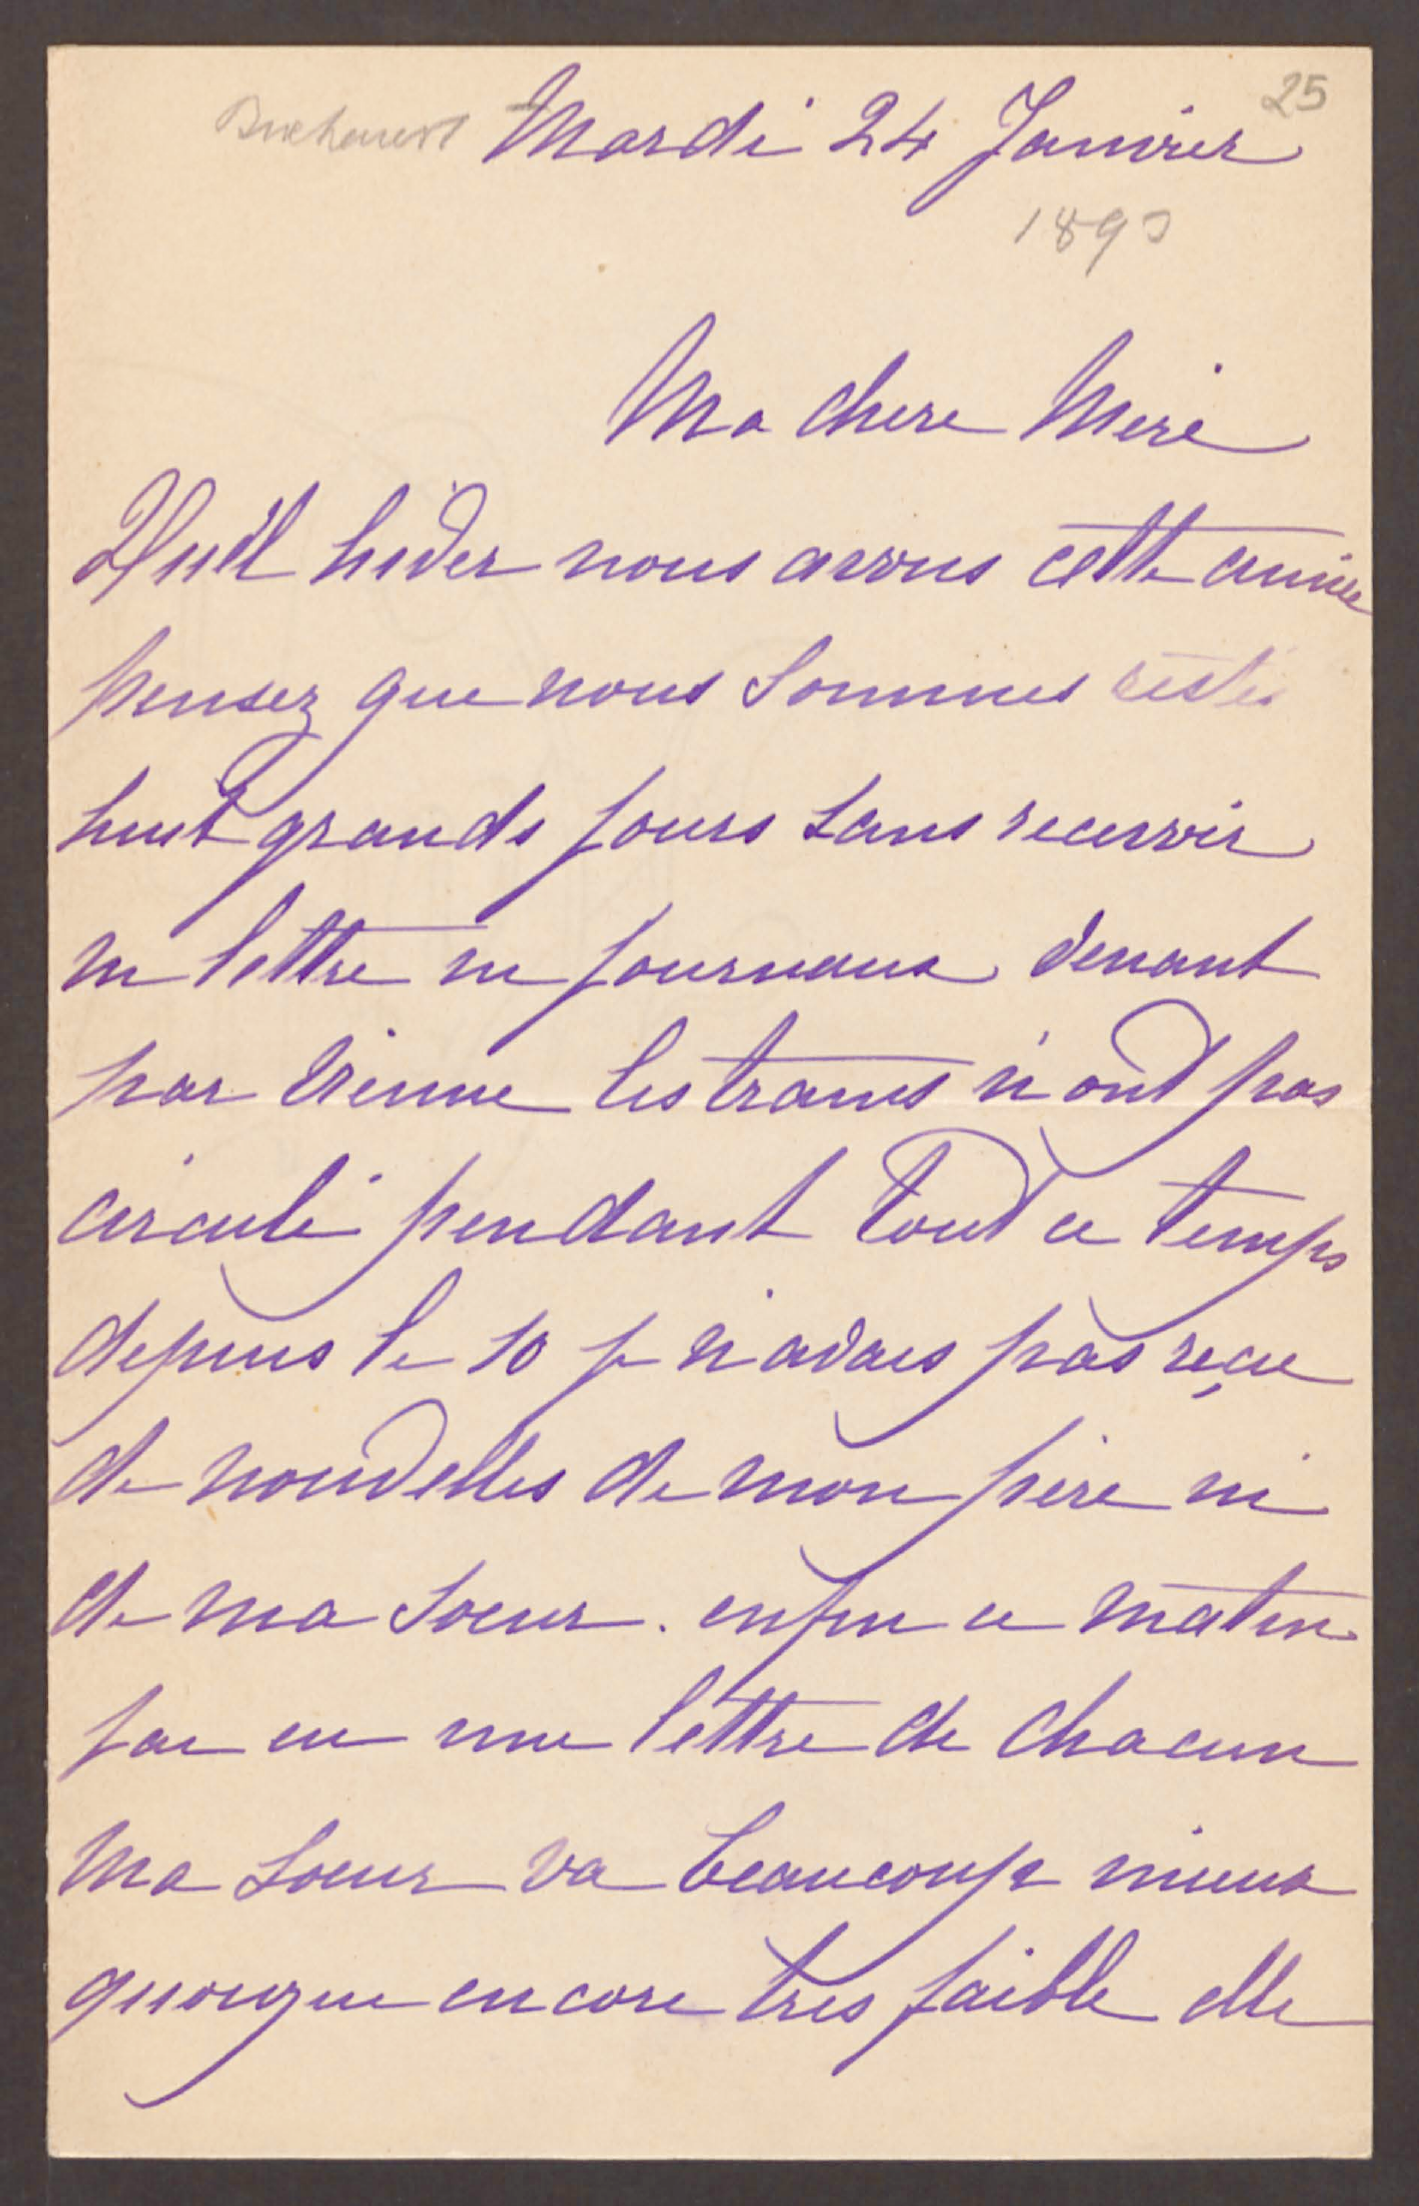 25
Bucharest Mardi 24 Janvier
1893
Ma chere Mere
Quel hiver nous avons cette année
pensez que nous sommes restés
huit grands jours sans recevoir
ni lettre ni journaux venant
par Vienne les trains n'ont pas
circulé pendant tout ce temps
depuis le 10 je n'avais pas reçu
de nouvelles de mon père ni
de ma soeur. enfin ce matin
j'ai eu une lettre de chacun
Ma soeur va beaucoup mieux
quoique encore tres faible elle